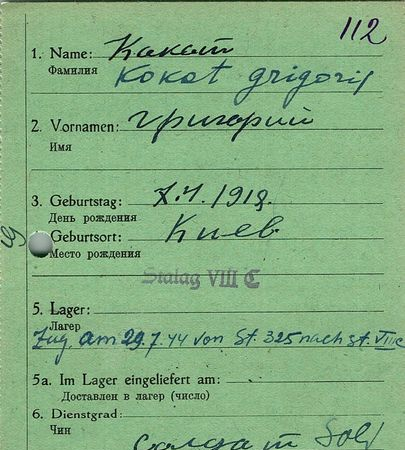 112
1. Name: Какот
Фамилия Kokot grigorij
2. Vornamen: григорий
Имя
3. Geburtstag: 7.4.1919.
День рождения
Geburtsort: Киев
Место рождения
Stalag VIII C
5. Lager:
Лагер
Zug. am 29.7.44 von St. 325 nach St. VIIIc
5a. Im Lager eingeliefert am:
Доставлен в лагер (число)
6. Dienstgrad:
Чин
Солдат Sold